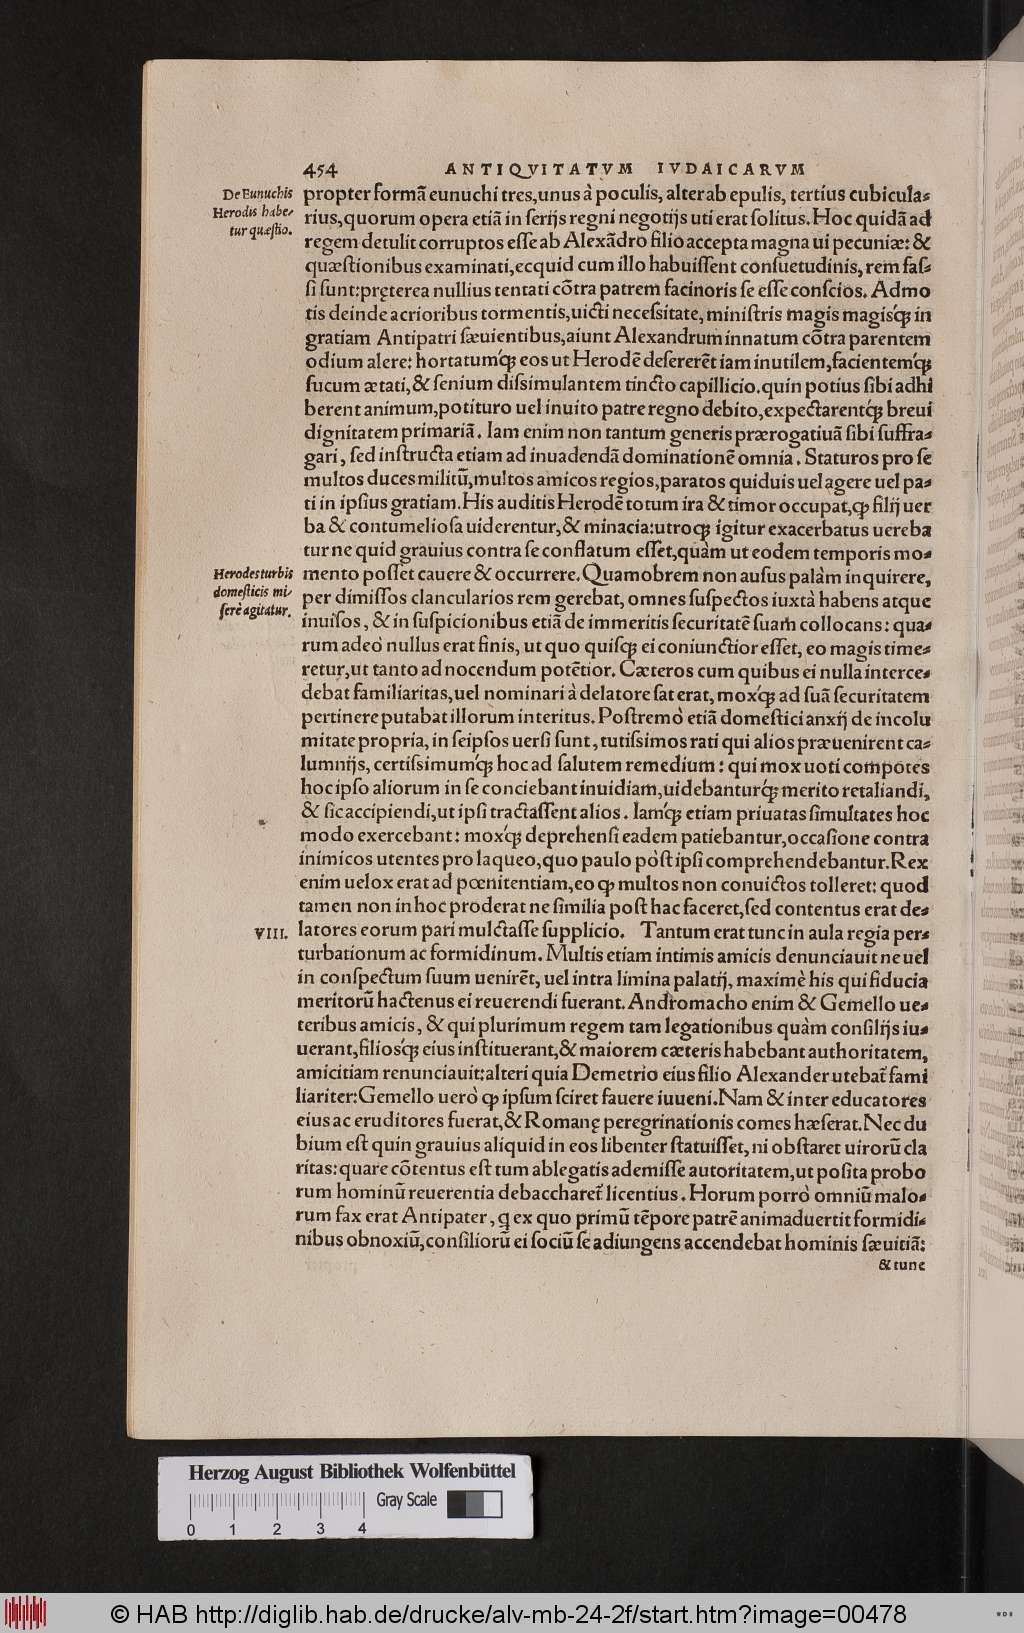 454 ANTIQVITATVM IVDAICARVM
De Eunuchis
Herodis habe-
tur quæstio.
propter formã eunuchi tres,unus à poculis, alter ab epulis, tertius cubicula-
rius,quorum opera etiã in serijs regni negotijs uti erat solitus. Hoc quidã ad
regem detulit corruptos esse ab Alexãdro filio accepta magna ui pecuniæ: &
quæstionibus examinati,ecquid cum illo habuissent consuetudinis, rem fas-
si sunt:pręterea nullius tentati cõtra patrem facinoris se esse conscios. Admo
tis deinde acrioribus tormentis,uicti necessitate, ministris magis magisq́ꝫ in
gratiam Antipatri sæuientibus,aiunt Alexandrum innatum cõtra parentem
odium alere: hortatumq́ꝫ eos ut Herodẽ desererẽt iam inutilem,facientemq́ꝫ
fucum ætati,& senium dissimulantem tincto capillicio.quin potius sibi adhi
berent animum,potituro uel inuito patre regno debito,expectarentq́ꝫ breui
dignitatem primariã. Iam enim non tantum generis prærogatiuã sibi suffra-
gari, sed instructa etiam ad inuadendã dominationẽ omnia. Staturos pro se
multos duces militũ,multos amicos regios,paratos quiduis uel agere uel pa-
ti in ipsius gratiam. His auditis Herodẽ totum ira & timor occupat,ꝙ filij uer
ba & contumeliosa uiderentur,& minacia:utroqꝫ igitur exacerbatus uereba
tur ne quid grauius contra se conflatum esset,quàm ut eodem temporis mo-
Herodes turbis
domesticis mi-
serè agitatur.
mento posset cauere & occurrere. Quamobrem non ausus palàm inquirere,
per dimissos clancularios rem gerebat, omnes suspectos iuxtà habens atque
inuisos, & in suspicionibus etiã de immeritis securitatẽ suam collocans: qua-
rum adeò nullus erat finis, ut quo quisqꝫ ei coniunctior esset, eo magis time-
retur,ut tanto ad nocendum potẽtior. Cæteros cum quibus ei nulla interce-
debat familiaritas,uel nominari à delatore sat erat, moxq́ꝫ ad suã securitatem
pertinere putabat illorum interitus. Postremò etiã domestici anxij de incolu
mitate propria, in seipsos uersi sunt, tutissimos rati qui alios præuenirent ca-
lumnijs, certissimumq́ꝫ hoc ad salutem remedium: qui mox uoti compotes
hoc ipso aliorum in se conciebant inuidiam,uidebanturq́ꝫ merito retaliandi,
& sic accipiendi,ut ipsi tractassent alios. Iamq́ꝫ etiam priuatas simultates hoc
modo exercebant: moxq́ꝫ deprehensi eadem patiebantur,occasione contra
inimicos utentes pro laqueo,quo paulo pòst ipsi comprehendebantur. Rex
enim uelox erat ad pœnitentiam,eo ꝙ multos non conuictos tolleret: quod
tamen non in hoc proderat ne similia post hac faceret,sed contentus erat de-
VIII. latores eorum pari mulctasse supplicio. Tantum erat tunc in aula regia per-
turbationum ac formidinum. Multis etiam intimis amicis denunciauit ne uel
in conspectum suum uenirẽt, uel intra limina palatij, maximè his qui fiducia
meritorũ hactenus ei reuerendi fuerant. Andromacho enim & Gemello ue-
teribus amicis, & qui plurimum regem tam legationibus quàm consilijs iu-
uerant,filiosq́ꝫ eius instituerant,& maiorem cæteris habebant authoritatem,
amicitiam renunciauit:alteri quia Demetrio eius filio Alexander utebat̃ fami
liariter:Gemello uerò ꝙ ipsum sciret fauere iuueni. Nam & inter educatores
eius ac eruditores fuerat,& Romanę peregrinationis comes hæserat. Nec du
bium est quin grauius aliquid in eos libenter statuisset, ni obstaret uirorũ cla
ritas: quare cõtentus est tum ablegatis ademisse autoritatem,ut posita probo
rum hominũ reuerentia debaccharet̃ licentius. Horum porrò omniũ malo-
rum fax erat Antipater, q ex quo primũ tẽpore patrẽ animaduertit formidi-
nibus obnoxiũ,consiliorũ ei sociũ se adiungens accendebat hominis sæuitiã:
& tunc
Herzog August Bibliothek Wolfenbüttel
Gray Scale
0 1 2 3 4
© HAB http://diglib.hab.de/drucke/alv-mb-24-2f/start.htm?image=00478